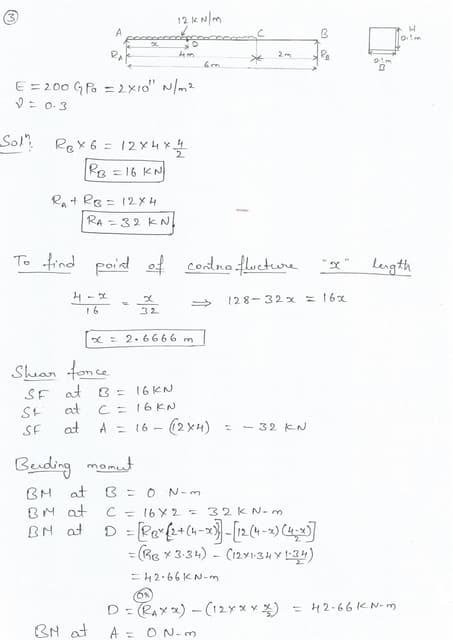 ③
12 KN/m
A C B
x D
4m 2m
R_A R_B
6m
H
0.1m
0.1m
B
E = 200 GPa = 2×10¹¹ N/m²
ν = 0.3
Solⁿ: R_B × 6 = 12×4×4/2
R_B = 16 KN
R_A + R_B = 12×4
R_A = 32 KN
To find point of contraflucture "x" length
4-x/16 = x/32 ⟹ 128-32x = 16x
x = 2.6666 m
Shear force
SF at B = 16KN
SF at C = 16KN
SF at A = 16 - (12×4) = - 32 KN
Bending momut
BM at B = 0 N-m
BM at C = 16×2 = 32 KN-m
BM at D = [R_B×{2+(4-x)}] - [12(4-x)(4-x/2)]
= (R_B × 3.34) - (12×1.34×1.34/2)
= 42.66 KN-m
OR
D = (R_A × x) - (12 × x × x/2) = 42.66 KN-m
BM at A = 0 N-m